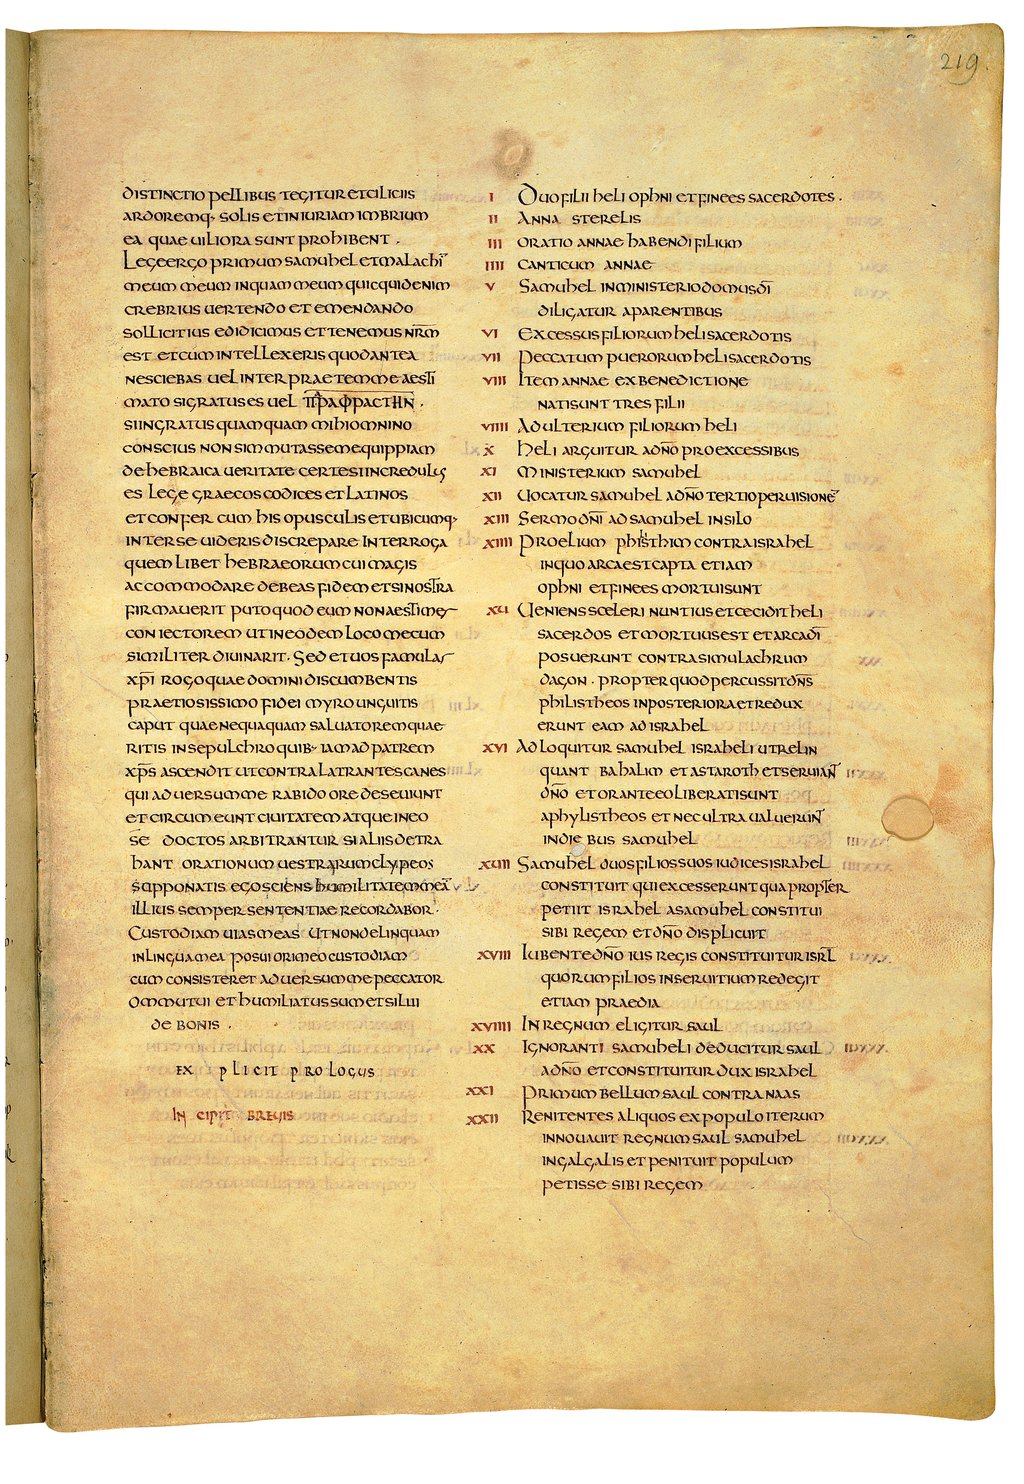 219.
distinctio pellibus tegitur et ciliciis
ardoremq· solis et iniuriam imbrium
ea quae uiliora sunt prohibent .
Lege ergo primum samuhel et malachī
meum meum inquam meum quicquid enim
crebrius uertendo et emendando
sollicitius edidicimus et tenemus nr̄m
est et cum intellexeris quod antea
nesciebas uel interpraetem me aesti
mato si gratus es uel ΠΑΡΑΦΡΑCΤΗΝ .
si ingratus quamquam mihi omnino
conscius non sim mutasse me quippiam
de hebraica ueritate certe si incredulus
es lege graecos codices et latinos
et confer cum his opusculis et ubicumq·
inter se uideris discrepare Interroga
quemlibet hebraeorum cui magis
accommodare debeas fidem et si nostra
firmauerit puto quod eum non aestimes
coniectorem ut in eodem loco mecum
similiter diuinarit. Sed et uos famulas
xp̄i rogo quae domini discumbentis
praetiosissimo fidei myro unguitis
caput quae nequaquam saluatorem quae
ritis in sepulchro quib· iam ad patrem
xp̄s ascendit ut contra latrantes canes
qui aduersum me rabido ore deseuiunt
et circumeunt ciuitatem atque in eo
se doctos arbitrantur si aliis detra
hant orationum uestrarum clypeos
supponatis ego sciens humilitatem meā
illius semper sententiae recordabor.
Custodiam uias meas Ut non delinquam
in lingua mea posui ori meo custodiam
cum consisteret aduersum me peccator
ommutui et humiliatus sum et silui
de bonis .
explicit prologus
In cipit breuis
I Duo filii heli ophni et finees sacerdotes .
II Anna sterelis
III Oratio annae habendi filium
IIII Canticum annae
V Samuhel in ministerio domus dī
diligatur aparentibus
VI Excessus filiorum heli sacerdotis
VII Peccatum puerorum heli sacerdotis
VIII Item annae ex benedictione
nati sunt tres filii
VIIII Adulterium filiorum heli
X heli arguitur a dn̄o pro excessibus
XI Ministerium samuhel
XII Uocatur samuhel a dn̄o tertio per uisionē
XIII Sermo dn̄i ad samuhel in silo
XIIII Proelium philisthim contra israhel
in quo arca est capta etiam
ophni et finees mortui sunt
XU Ueniens sceleri nuntius et cecidit heli
sacerdos et mortuus est et arca dī
posuerunt contra simulachrum
dagon . propter quod percussit dn̄s
philistheos in posteriora et redux
erunt eam ad israhel
XVI Adloquitur samuhel israheli ut relin
quant bahalim et astaroth et seruiant
dn̄o et orante eo liberati sunt
aphylistheos et nec ultra ualuerunt
in diebus samuhel
XUII Samuhel duos filios suos iudices israhel
constituit qui excesserunt quapropter
petiit israhel a samuhel constitui
sibi regem et dn̄o displicuit
XVIII Iubente dn̄o ius regis constituitur isr̄l
quorum filios in seruitium redegit
etiam praedia
XVIIII In regnum eligitur saul
XX Ignoranti samuheli deducitur saul
a dn̄o et constituitur dux israhel
XXI Primum bellum saul contra naas
XXII Renitentes aliquos ex populo iterum
innouauit regnum saul samuhel
in galgalis et penituit populum
petisse sibi regem